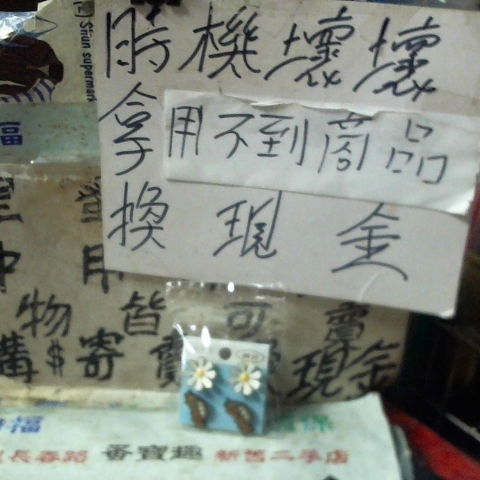 Sijun supermar
時機壞壞
拿用不到商品
換現金
福
中用
物皆可賣
購$寄賣 現金
幸福
長春路 番寶趣 新舊二手店